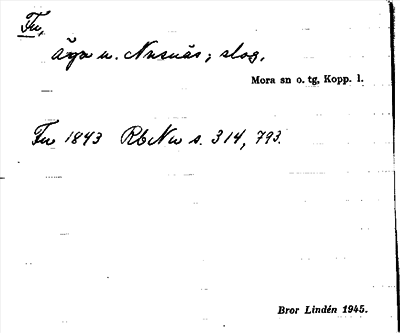 Fu,
äga u. Nusnäs; slog.
Mora sn o. tg, Kopp. l.
Fu 1843 RbNu s. 314, 793.
Bror Lindén 1945.